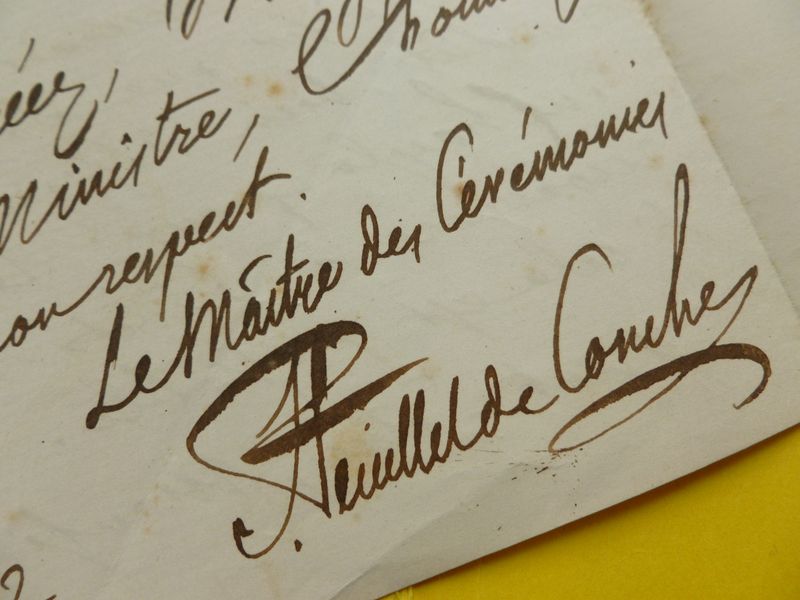 Ministre,
mon respect.
Le Maître des Cérémonies
F. Feuillet de Conches